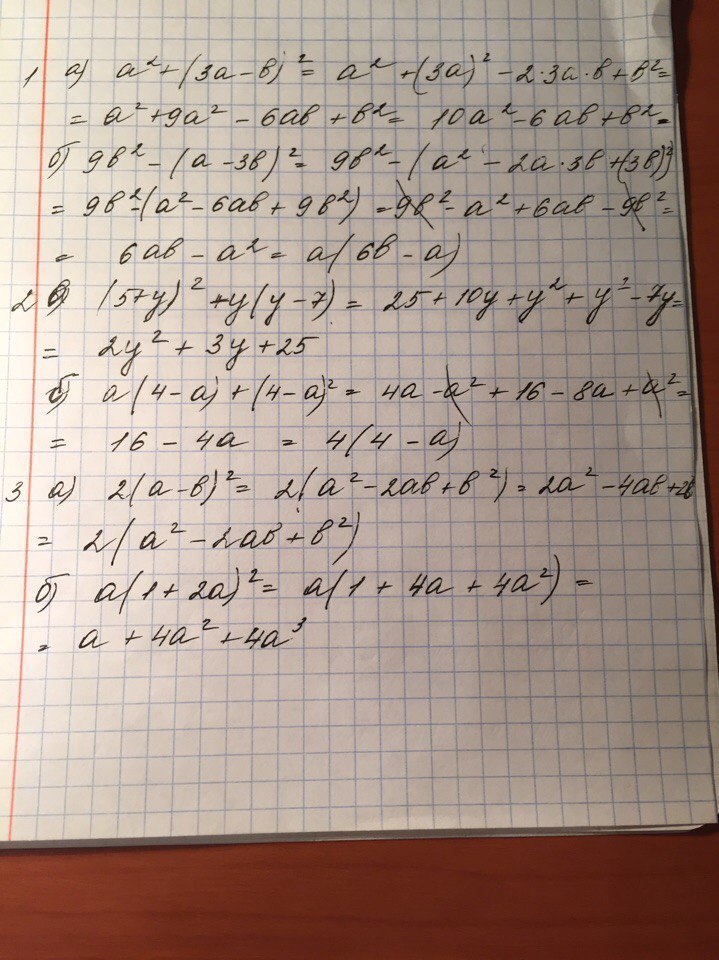 1 а) a² + (3a - в)² = a² + (3a)² - 2·3a·в + в² =
= a² + 9a² - 6aв + в² = 10a² - 6aв + в² -
б) 9в² - (a - 3в)² = 9в² - (a² - 2a·3в + (3в)²)
= 9в² - (a² - 6aв + 9в²) = 9в² - a² + 6aв - 9в² =
= 6aв - a² = a(6в - a)
2 а) (5+y)² + y(y - 7) = 25 + 10y + y² + y² - 7y =
= 2y² + 3y + 25
б) a(4 - a) + (4 - a)² = 4a - a² + 16 - 8a + a² =
= 16 - 4a = 4(4 - a)
3 а) 2(a - в)² = 2(a² - 2aв + в²) = 2a² - 4aв + 2в
= 2(a² - 2aв + в²)
б) a(1 + 2a)² = a(1 + 4a + 4a²) =
= a + 4a² + 4a³